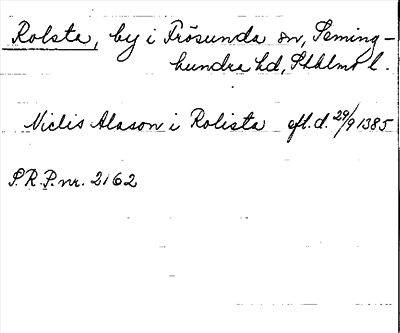 Rolsta, by i Frösunda sn, Seming-
hundra hd, Sthlms l.
Niclis Alason i Rolista efl. d. 29/9 1385
S.R.P. nr. 2162